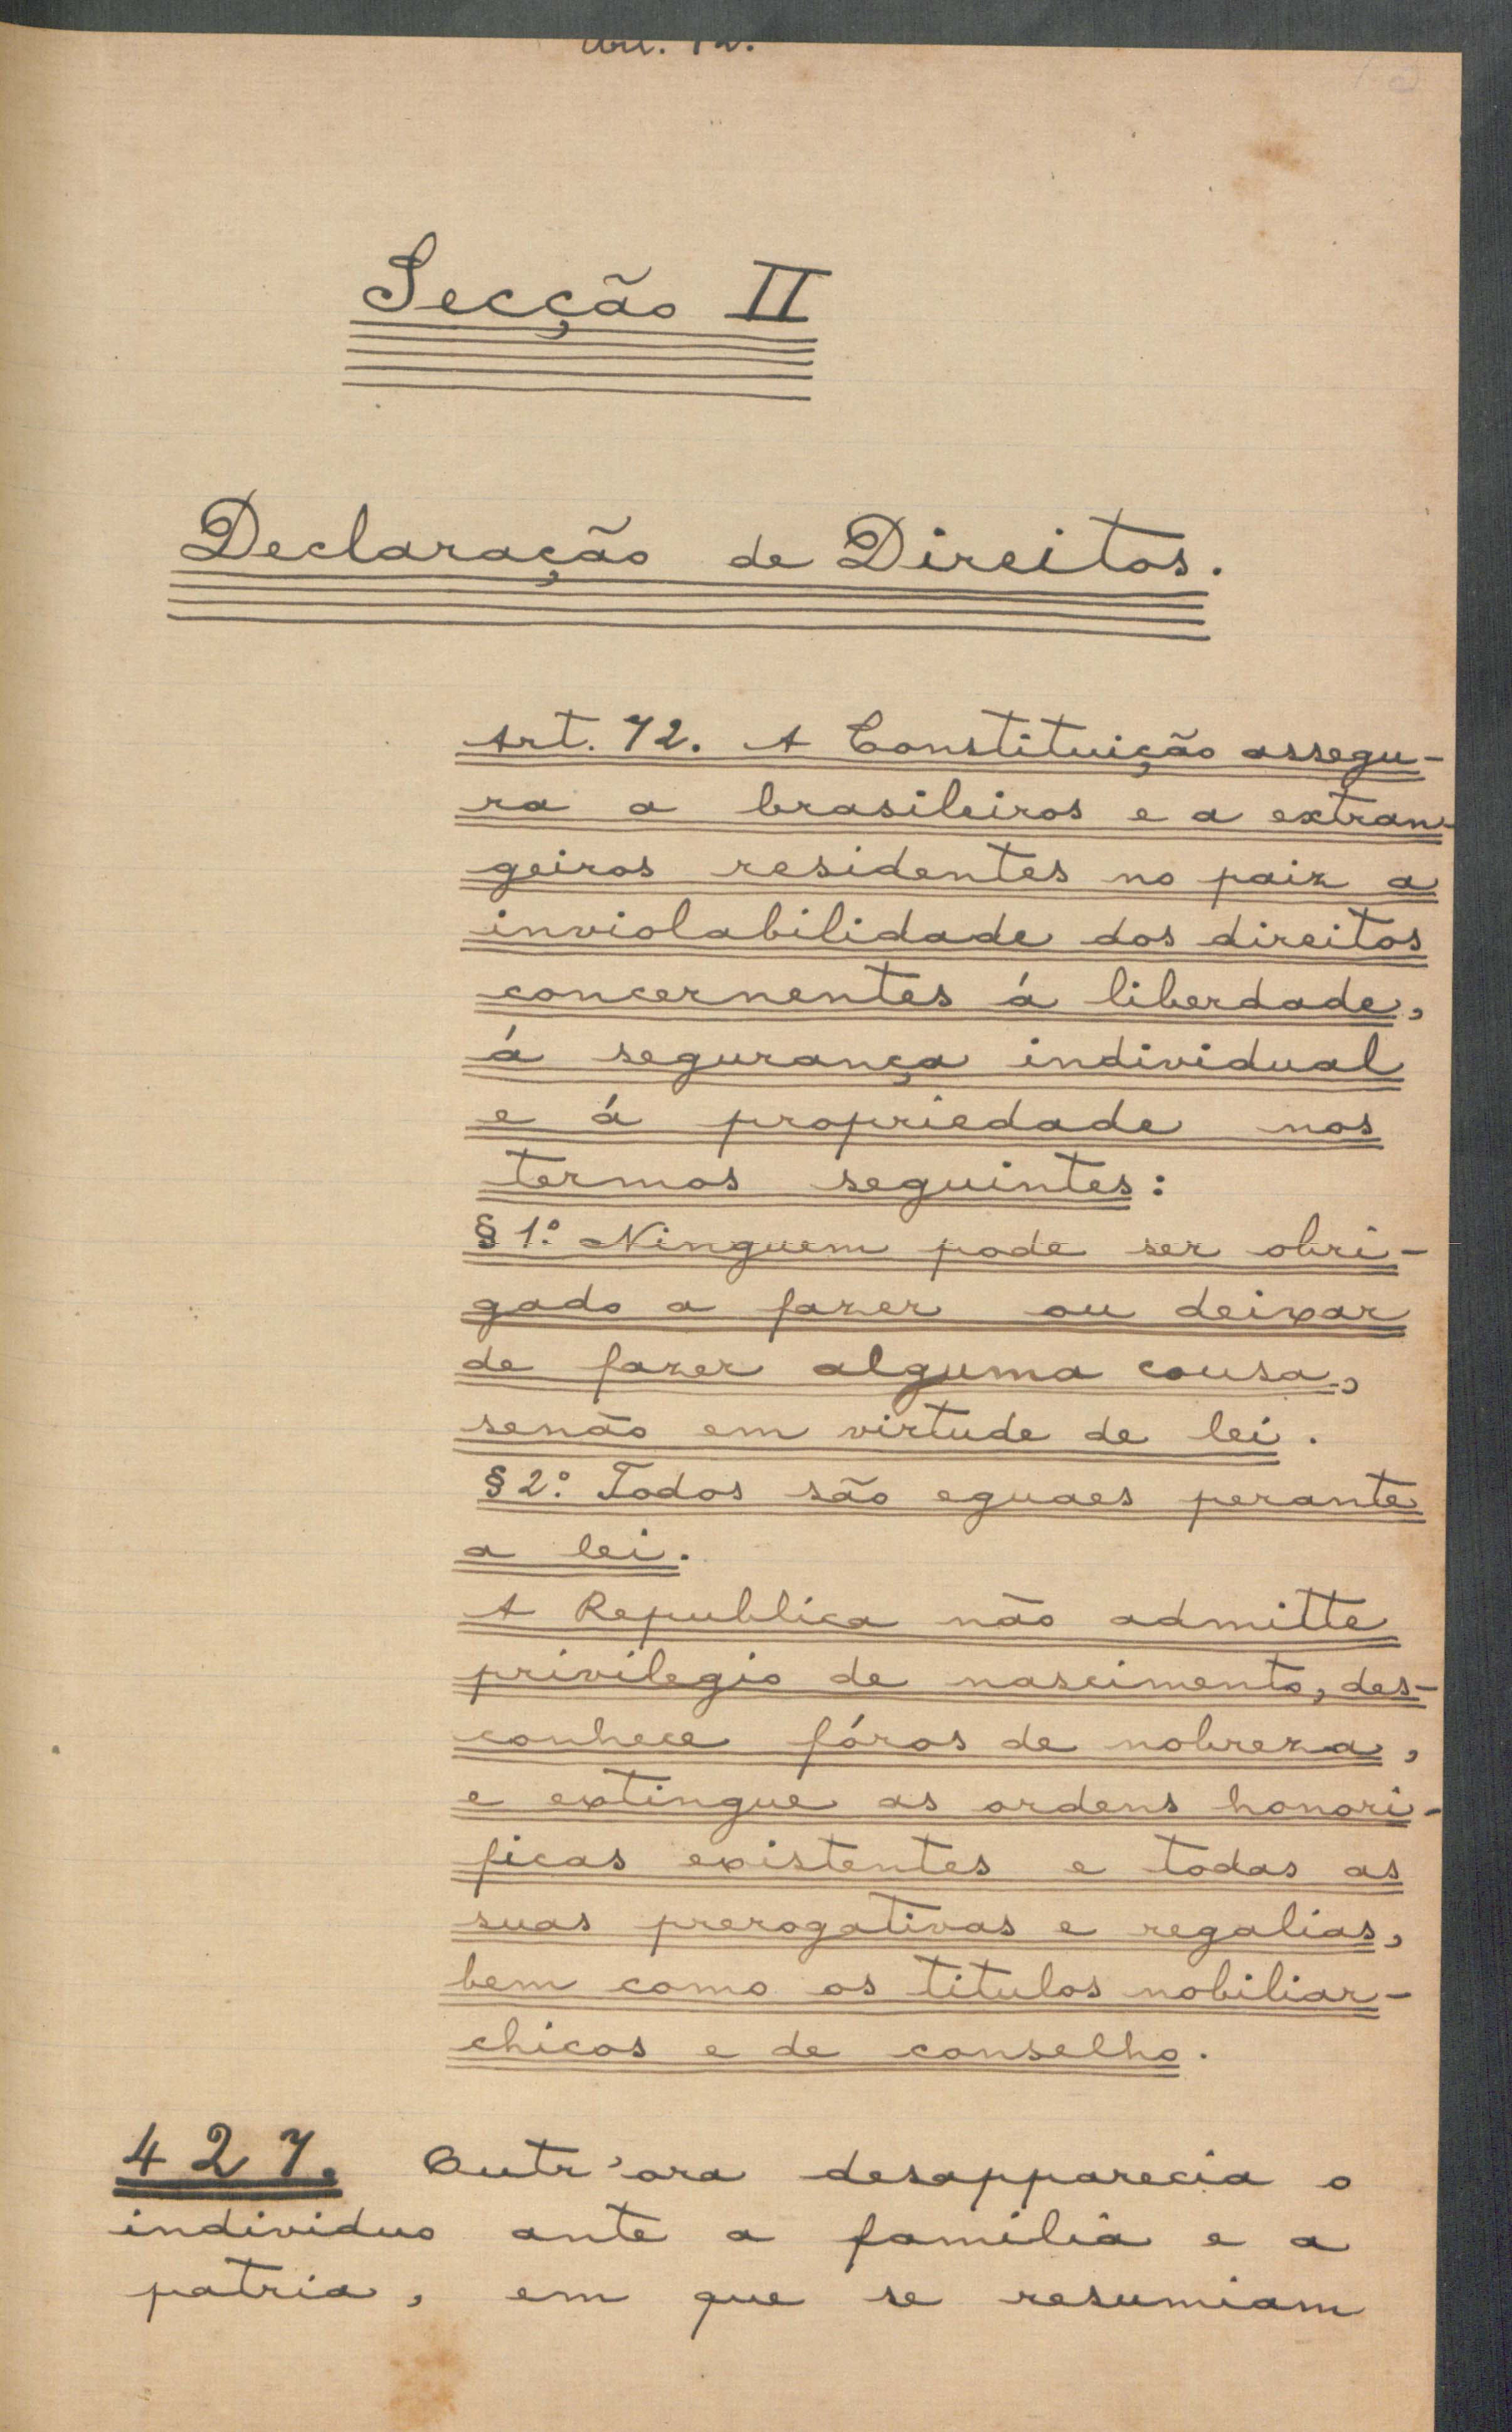 Art. 72.
Secção II
Declaração de Direitos.
Art. 72. A Constituição assegu-
ra a brasileiros e a extran-
geiros residentes no paiz a
inviolabilidade dos direitos
concernentes á liberdade,
á segurança individual
e á propriedade nos
termos seguintes:
§ 1º. Ninguem pode ser obri-
gado a fazer ou deixar
de fazer alguma cousa,
senão em virtude de lei.
§ 2º. Todos são eguaes perante
a lei.
A Republica não admitte
privilegio de nascimento, des-
conhece fóros de nobreza,
e extingue as ordens honori-
ficas existentes e todas as
suas prerogativas e regalias,
bem como os titulos nobiliar-
chicos e de conselho.
427. Outr'ora desapparecia o
individuo ante a familia e a
patria, em que se resumiam